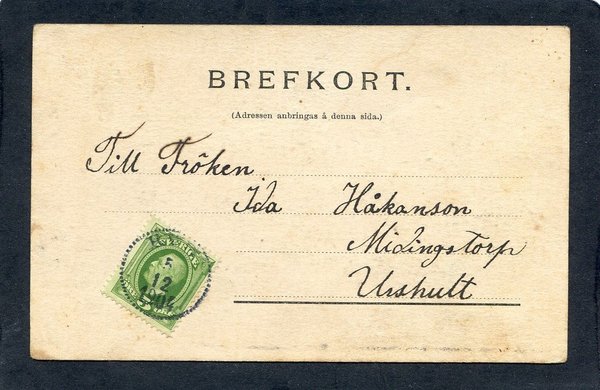 BREFKORT.
(Adressen anbringas å denna sida.)
Till Fröken
Ida Håkanson
Midingstorp
Urshult
SVERIGE
5
12
1904